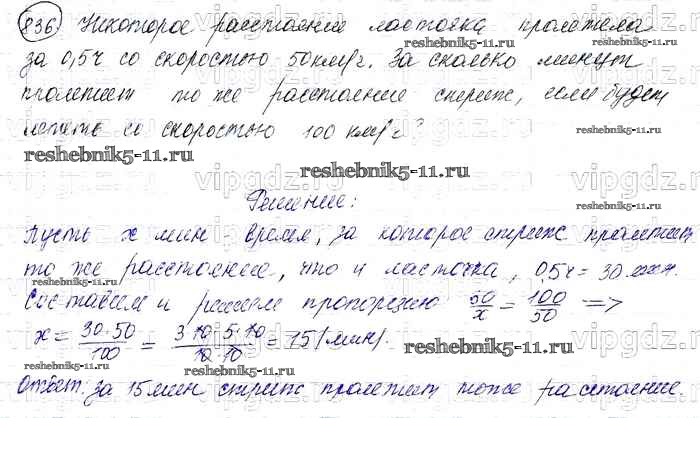 836) Некоторое расстояние ласточка пролетела
за 0,5ч со скоростью 50км/ч. За сколько минут
пролетит то же расстояние стриж, если будет
лететь со скоростью 100 км/ч?
Решение:
Пусть x мин время, за которое стриж пролетит
то же расстояние, что и ласточка, 0,5ч = 30 мин.
Составим и решим пропорцию 50/x = 100/50 =>
x = 30·50/100 = 3·10·5·10/10·10 = 15 (мин).
Ответ: за 15 мин стриж пролетит то же расстояние.
reshebnik5-11.ru
reshebnik5-11.ru
reshebnik5-11.ru
reshebnik5-11.ru
reshebnik5-11.ru
reshebnik5-11.ru
reshebnik5-11.ru
vipgdz.ru
vipgdz.ru
vipgdz.ru